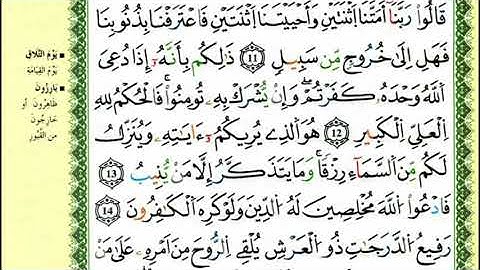 قَالُوا۟ رَبَّنَآ أَمَتَّنَا ٱثْنَتَيْنِ وَأَحْيَيْتَنَا ٱثْنَتَيْنِ فَٱعْتَرَفْنَا بِذُنُوبِنَا
فَهَلْ إِلَىٰ خُرُوجٍ مِّن سَبِيلٍ 11 ذَٰلِكُم بِأَنَّهُۥٓ إِذَا دُعِىَ
ٱللَّهُ وَحْدَهُۥ كَفَرْتُمْ وَإِن يُشْرَكْ بِهِۦ تُؤْمِنُوا۟ فَٱلْحُكْمُ لِلَّهِ
ٱلْعَلِىِّ ٱلْكَبِيرِ 12 هُوَ ٱلَّذِى يُرِيكُمْ ءَايَٰتِهِۦ وَيُنَزِّلُ
لَكُم مِّنَ ٱلسَّمَآءِ رِزْقًا وَمَا يَتَذَكَّرُ إِلَّا مَن يُنِيبُ 13
فَٱدْعُوا۟ ٱللَّهَ مُخْلِصِينَ لَهُ ٱلدِّينَ وَلَوْ كَرِهَ ٱلْكَٰفِرُونَ 14
رَفِيعُ ٱلدَّرَجَٰتِ ذُو ٱلْعَرْشِ يُلْقِى ٱلرُّوحَ مِنْ أَمْرِهِۦ عَلَىٰ مَن
يَوْمَ التَّلَاقِ
يَوْمَ القِيَامَةِ
بَارِزُونَ
ظَاهِرُونَ أو
خَارِجُونَ
من القُبُورِ